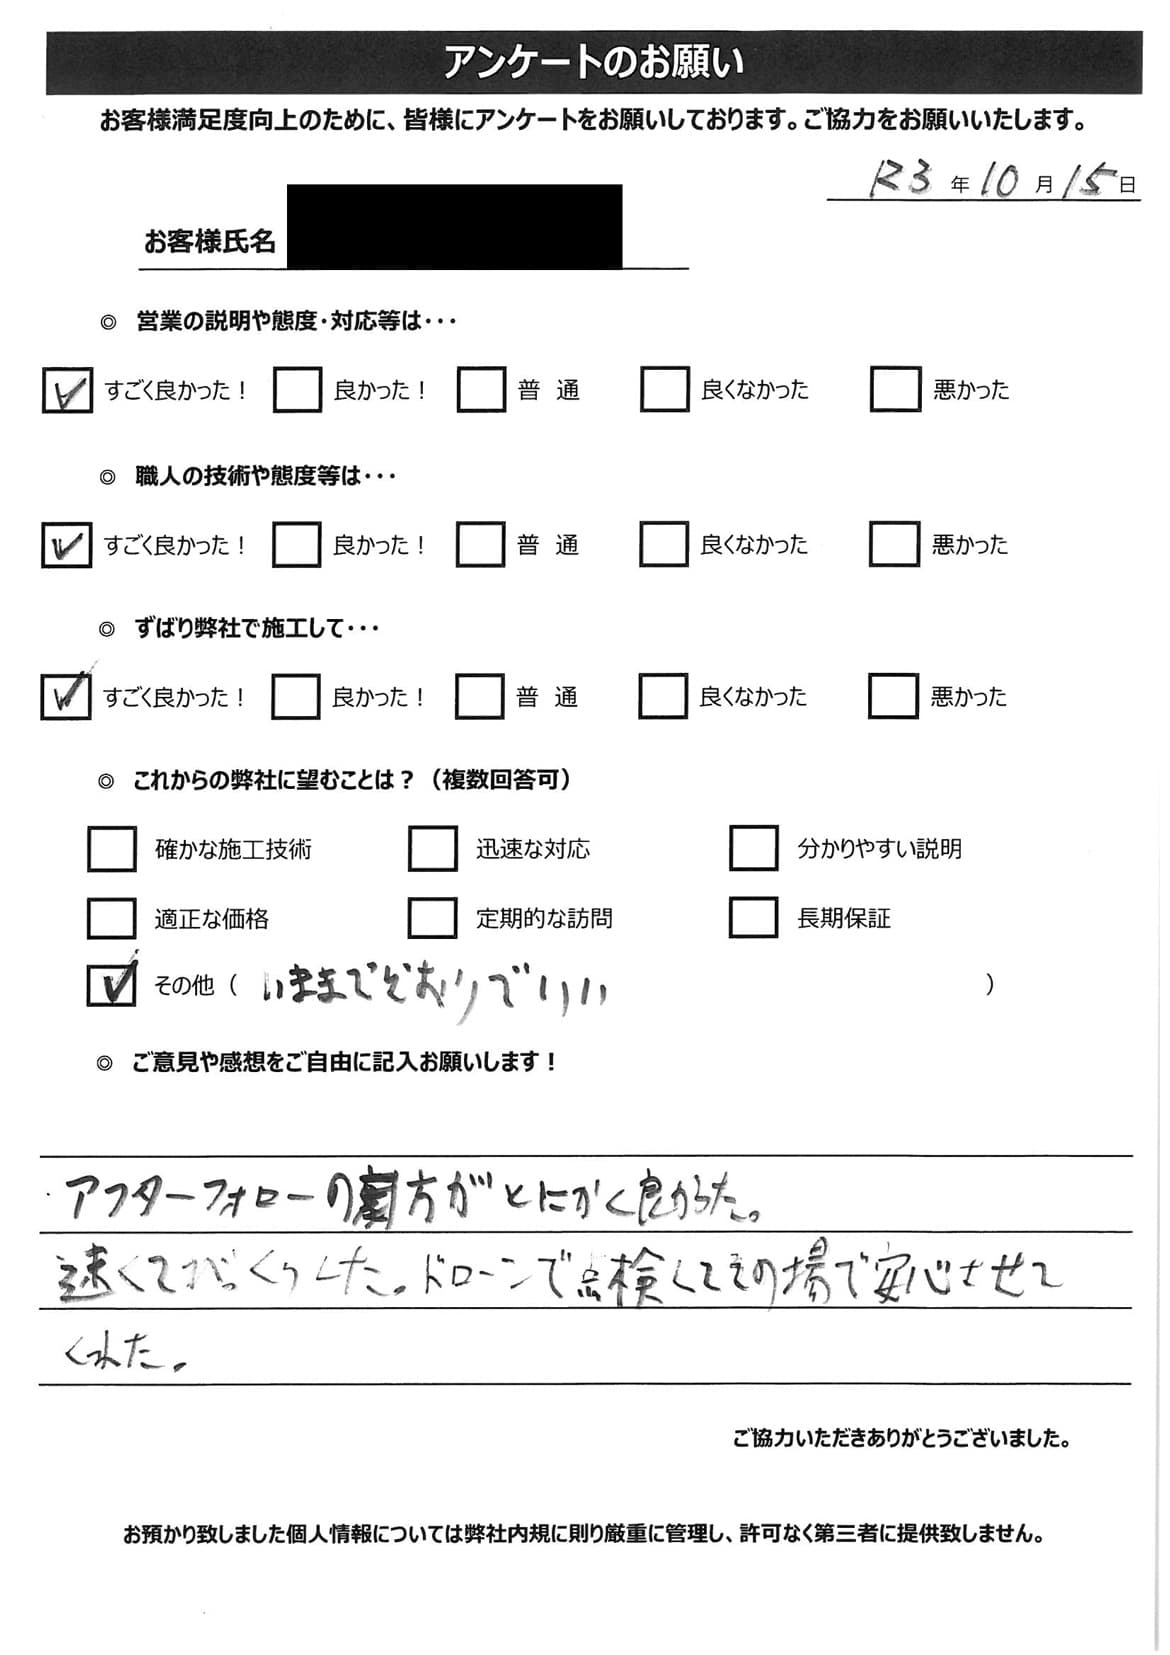 アンケートのお願い
お客様満足度向上のために、皆様にアンケートをお願いしております。ご協力をお願いいたします。
R3 年 10 月 15 日
お客様氏名
◎ 営業の説明や態度・対応等は・・・
すごく良かった！ 良かった！ 普 通 良くなかった 悪かった
◎ 職人の技術や態度等は・・・
すごく良かった！ 良かった！ 普 通 良くなかった 悪かった
◎ ずばり弊社で施工して・・・
すごく良かった！ 良かった！ 普 通 良くなかった 悪かった
◎ これからの弊社に望むことは？（複数回答可）
確かな施工技術 迅速な対応 分かりやすい説明
適正な価格 定期的な訪問 長期保証
その他（ いままでどおりでいい ）
◎ ご意見や感想をご自由に記入お願いします！
アフターフォローの 方がとにかく良かった。
速くてびっくりした。ドローンで点検してその場で安心させて
くれた。
ご協力いただきありがとうございました。
お預かり致しました個人情報については弊社内規に則り厳重に管理し、許可なく第三者に提供致しません。